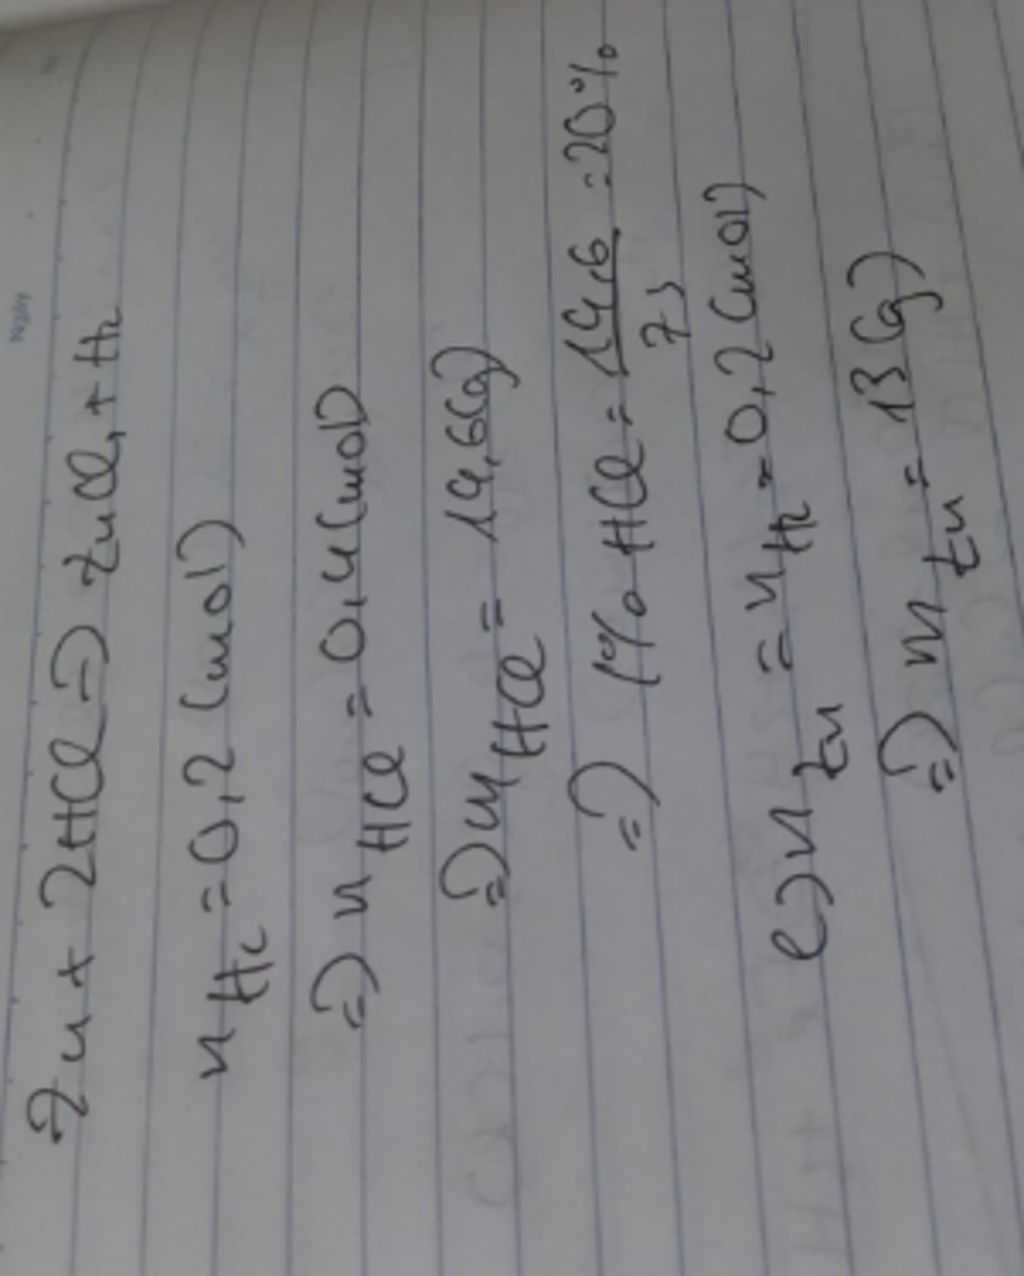 Zn + 2HCl => ZnCl₂ + H₂
nH₂ = 0,2 (mol)
=> nHCl = 0,4 (mol)
=> mHCl = 14,6 (g)
=> C% HCl = 14,6 / 73 = 20%
c) nZn = nH₂ = 0,2 (mol)
=> mZn = 13 (g)